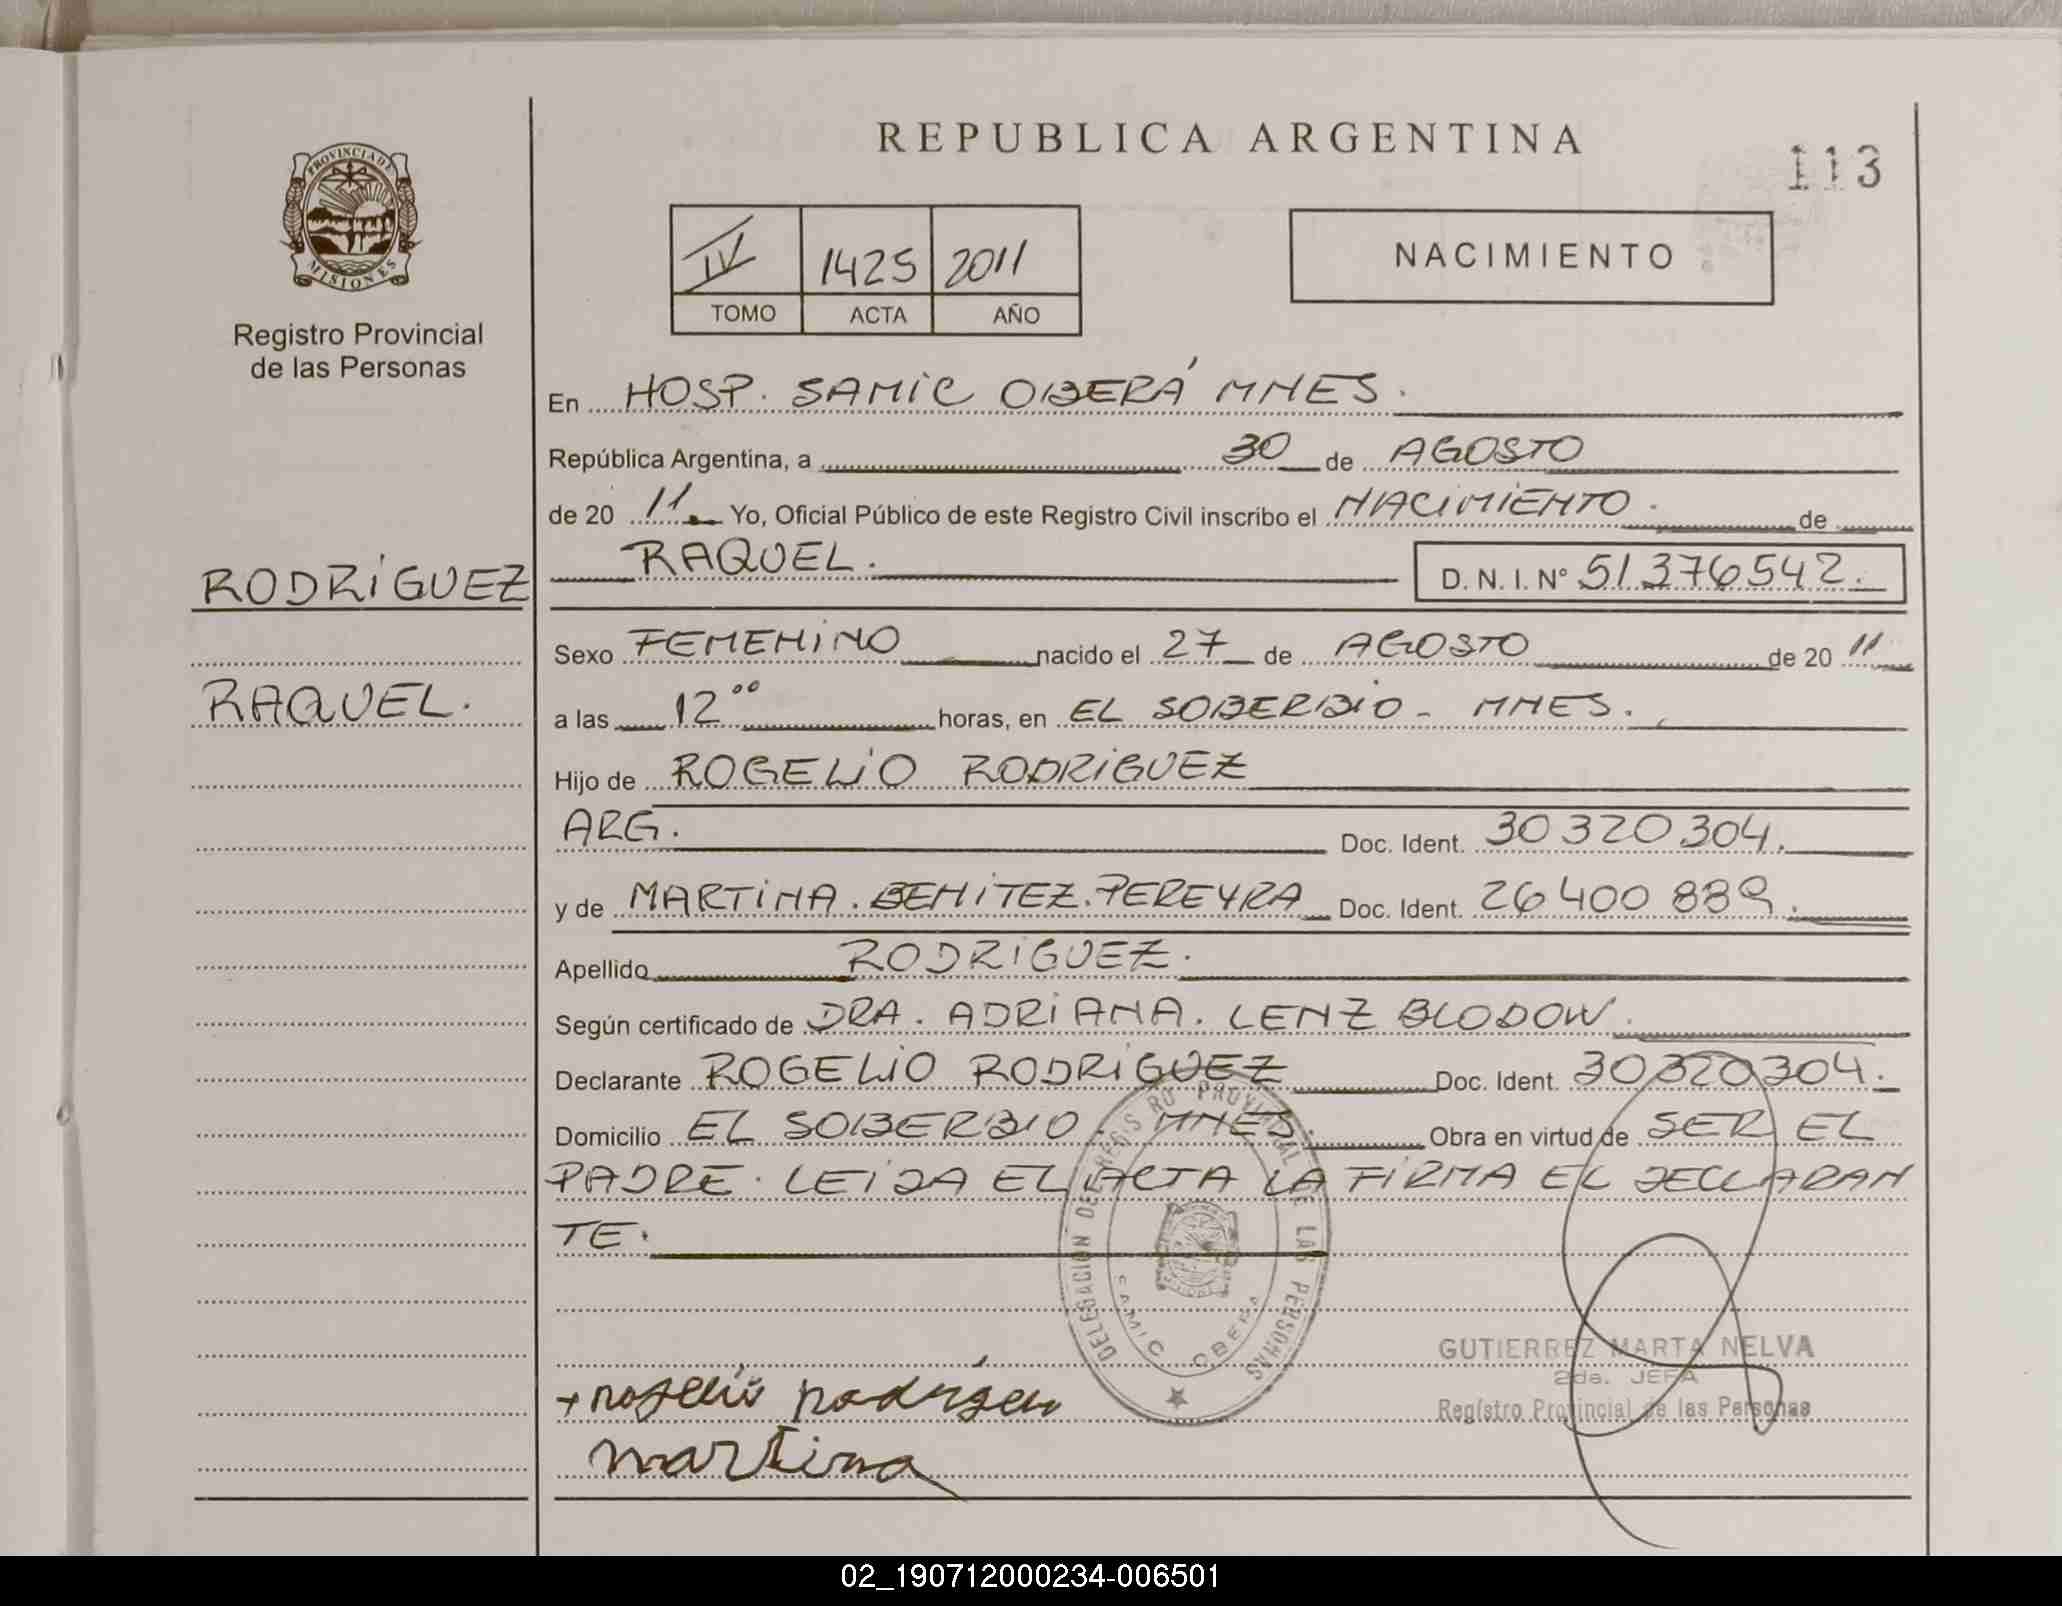 REPUBLICA ARGENTINA
113
PROVINCIA DE
MISIONES
Registro Provincial
de las Personas
IV 1425 2011
TOMO ACTA AÑO
NACIMIENTO
En HOSP. SAMIC OBERÁ MNES.
República Argentina, a 30 de AGOSTO
de 20 11 Yo, Oficial Público de este Registro Civil inscribo el NACIMIENTO. de
RAQUEL. D. N. I. Nº 51376542.
RODRIGUEZ
RAQUEL.
Sexo FEMENINO nacido el 27 de AGOSTO de 20 11
a las 12 00 horas, en EL SOBERBIO - MNES.
Hijo de ROGELIO RODRIGUEZ
ARG. Doc. Ident. 30320304.
y de MARTINA. BENITEZ. PEREYRA Doc. Ident. 26400889.
Apellido RODRIGUEZ.
Según certificado de DRA. ADRIANA. LENZ BLODOW.
Declarante ROGELIO RODRIGUEZ Doc. Ident. 30320304.
Domicilio EL SOBERBIO. MNES. Obra en virtud de SER EL
PADRE. LEIDA EL ACTA LA FIRMA EL DECLARAN
TE.
DELEGACIÓN DE REGISTRO PROVINCIAL DE LAS PERSONAS
SAMIC OBERA
GUTIERREZ MARTA NELVA
2da. JEFA
Registro Provincial de las Personas
+ rogelio rodrigue
martina
02_190712000234-006501